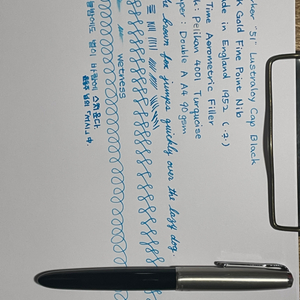 ker '51' Lustraloy Cap Black
k Gold Fine Point Nib
de in England 1952 (?)
Time Aerometric Filler
: Pelikan 4001 Turquoise
per: Double A A4 90gsm
he brown fox jumps quickly over the lazy dog.
wetness
별이 바람에 스치운다.